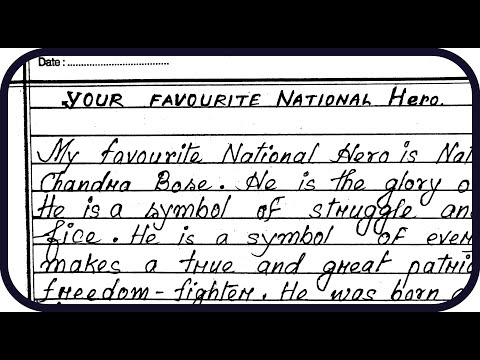 Date : ....................................
YOUR FAVOURITE NATIONAL Hero.
My favourite National Hero is Nat
Chandra Bose. He is the glory o
He is a symbol of struggle an
fice. He is a symbol of ever
makes a true and great patrio
freedom-fighter. He was born